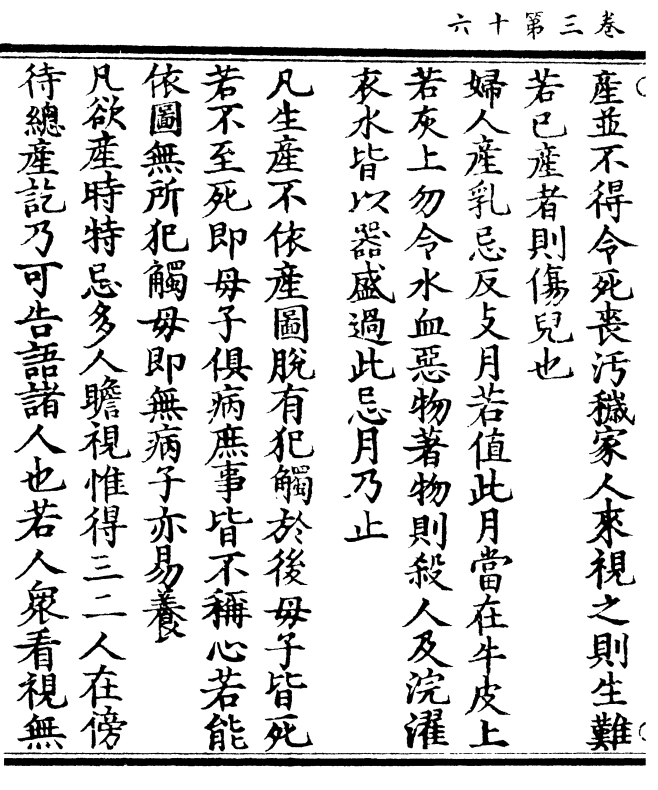 卷三第十六
産並不得令死喪汚穢家人來視之則生難
若已産者則傷兒也
婦人産乳忌反支月若值此月當在牛皮上
若灰上勿令水血惡物著物則殺人及浣濯
衣水皆以器盛過此忌月乃止
凡生産不依産圖脫有犯觸於後母子皆死
若不至死即母子俱病庶事皆不稱心若能
依圖無所犯觸母即無病子亦易養
凡欲産時特忌多人瞻視惟得三二人在傍
待總産訖乃可告語諸人也若人衆看視無